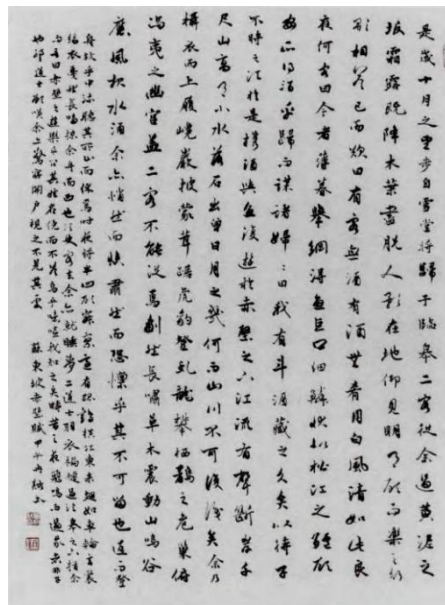 是歲十月之望步自雪堂將歸于臨皋二客從過黃泥之
坂霜露既降木葉盡脫人影在地仰見明月顧而樂之行
歌相答已而歎曰有客無酒有酒無肴月白風清如此良
夜何客曰今者薄暮舉網得魚巨口細鱗狀似松江之鱸顧
安所得酒乎歸而謀諸婦婦曰我有斗酒藏之久矣以待子
不時之須於是攜酒與魚復遊於赤壁之下江流有聲斷岸千
尺山高月小水落石出曾日月之幾何而山川不可復識矣余乃
攝衣而上履巉巖披蒙茸踞虎豹登虬龍攀栖鶻之危巢俯
馮夷之幽宮蓋二客不能從焉劃然長嘯草木震動山鳴谷
應風起水涌余亦悄然而悲肅然而恐凜乎其不可留也返而登
舟放乎中流聽其所止而休焉時夜將半四顧寂寥適有孤鶴橫江東來翅如車輪玄裳
縞衣戛然長鳴掠余舟而西也須臾客去余亦就睡夢二道士羽衣蹁躚過臨皋之下揖余
而言曰赤壁之遊樂乎問其姓名俛而不答嗚呼噫嘻我知之矣疇昔之夜飛鳴而過我者非子
也耶道士顧笑余亦驚寤開戶視之不見其處 蘇東坡赤壁賦甲午